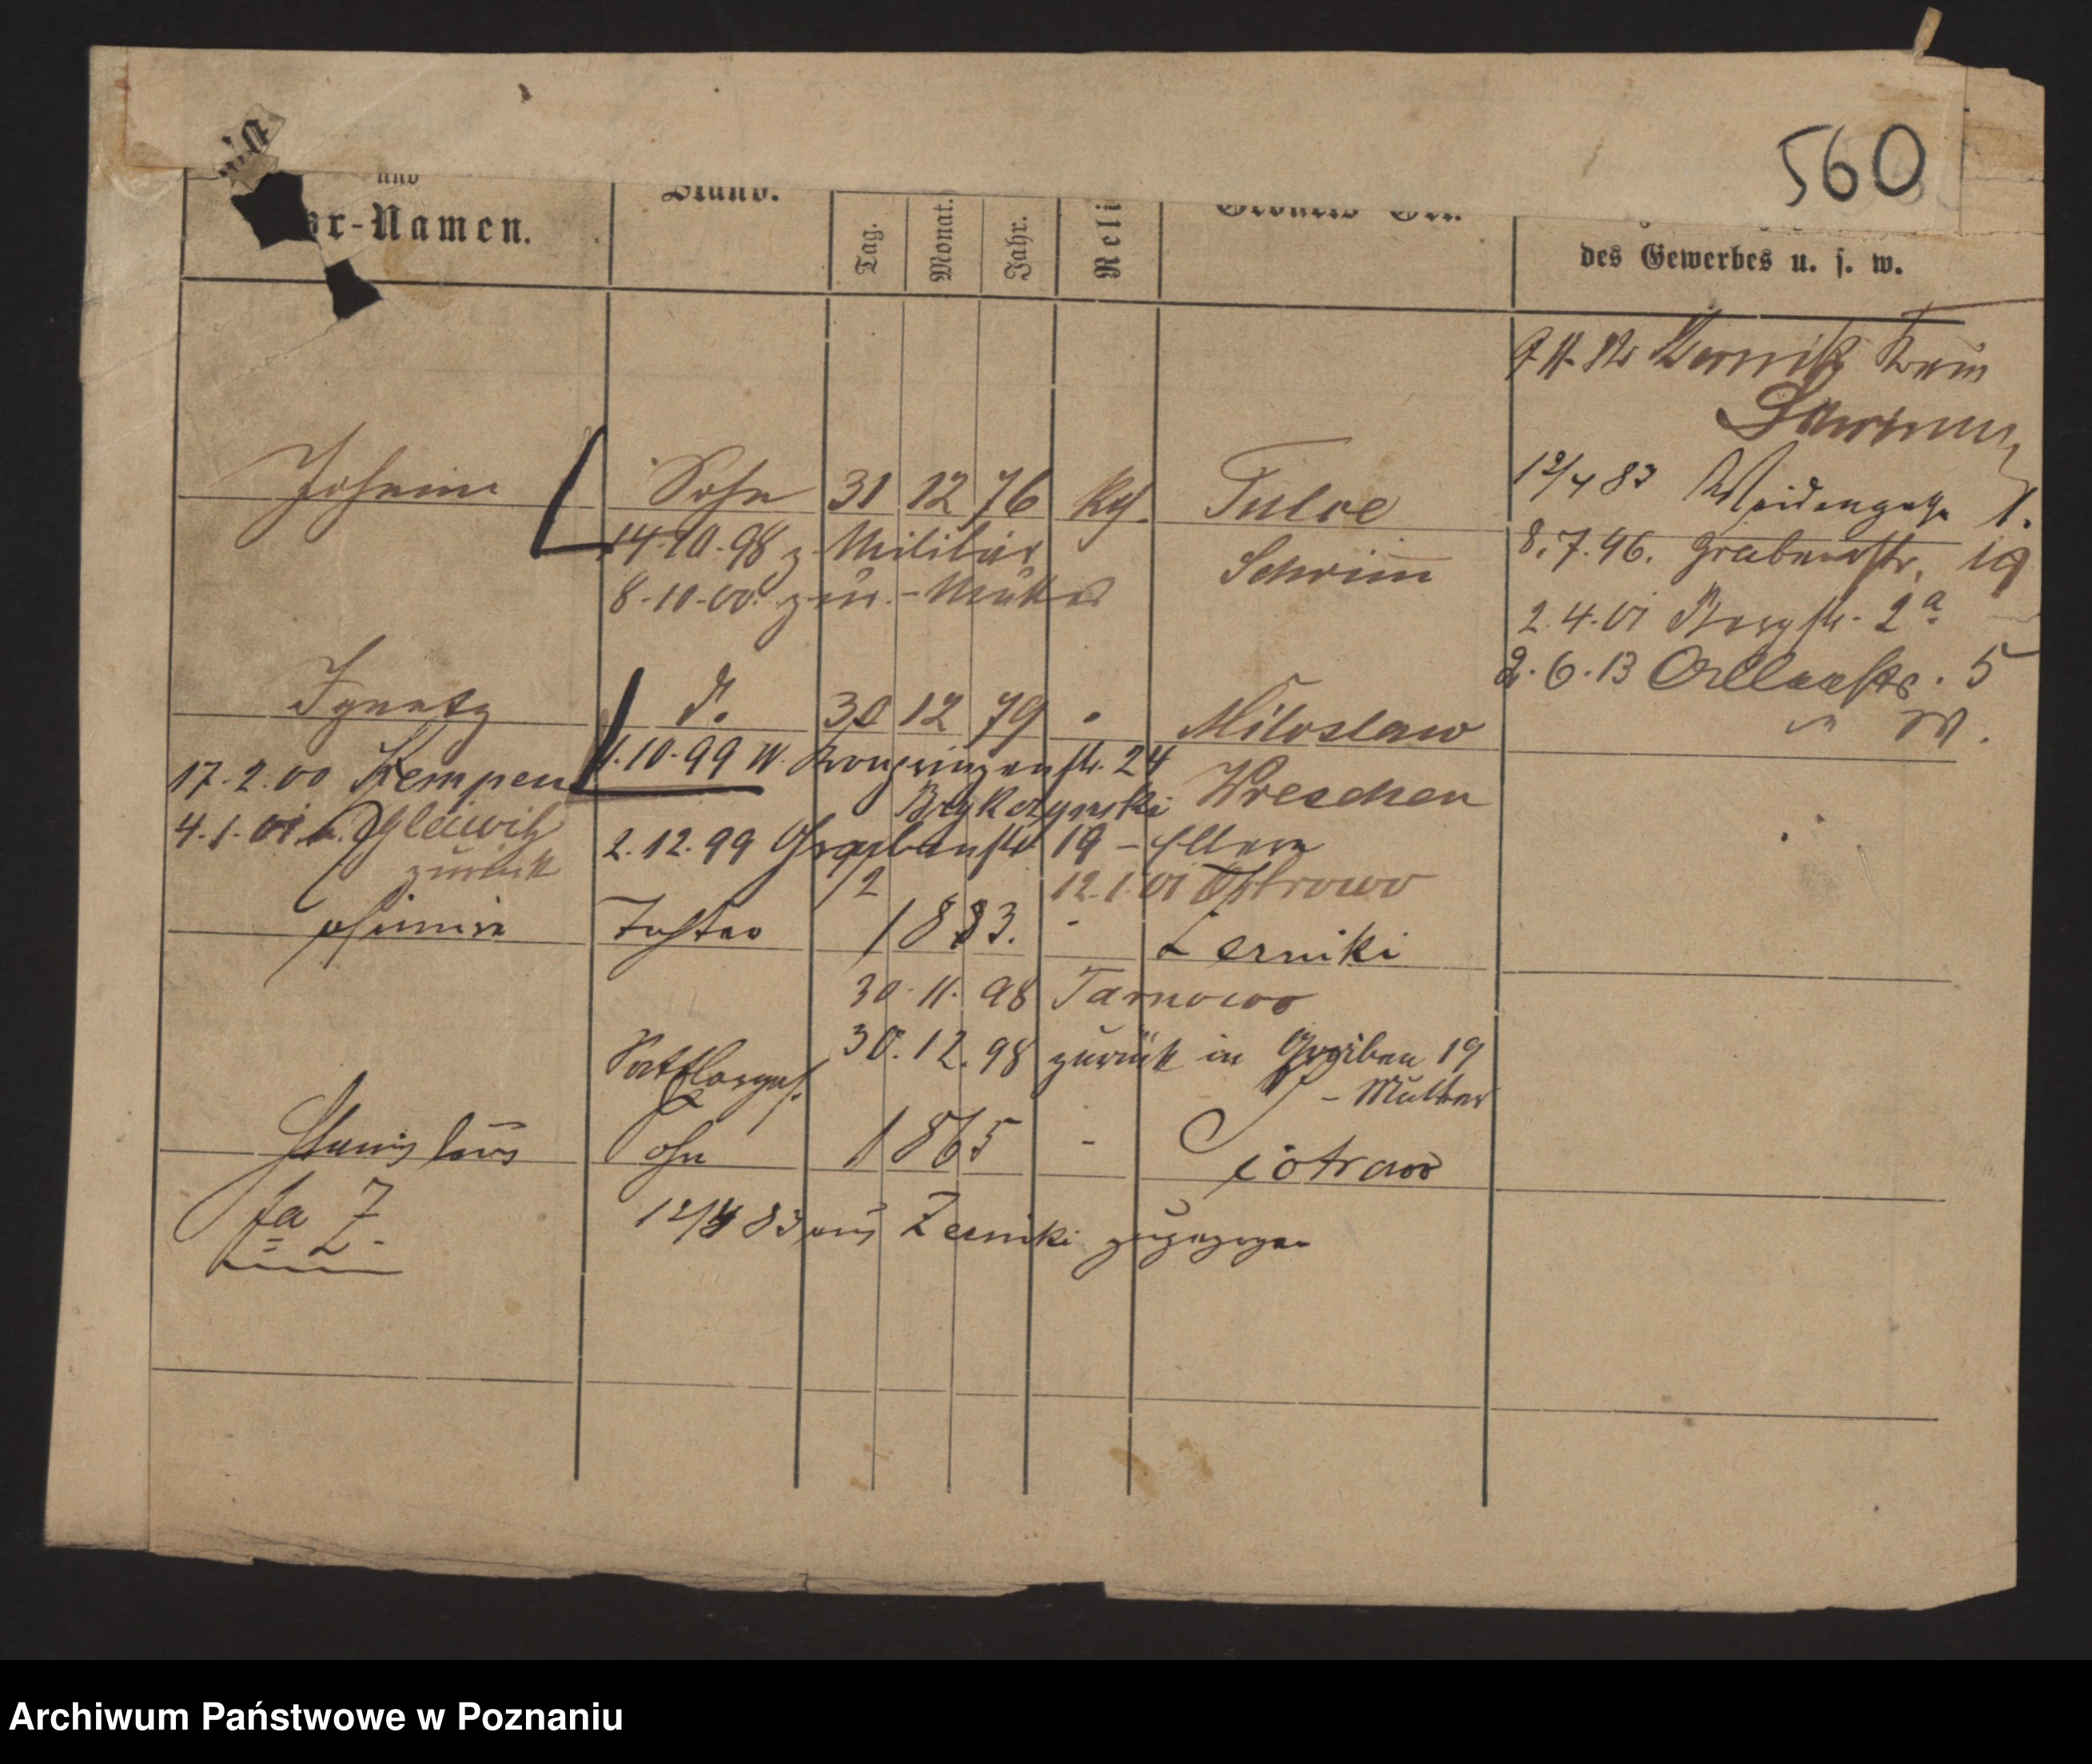 560
und
r-Namen.
Stand.
Tag.
Monat.
Jahr.
Reli
Geburts Ort.
des Gewerbes u. s. w.
Johann Sohn 31 12 76 Kth. Tulce
Schrimm
14.10.98 z. Militär
8.10.00. zur. - Mutter
12/4 83 Weidengasse 1.
8.7.96. Grabenstr. 19
2.4.01 Bergstr. 2a
2.6.13 5
W.
Ignatz d. 30 12 79 Miloslaw
Wreschen
17.2.00 Kempen
1.10.99 W. Kronprinzenstr. 24
4.1.01 v. Gleiwitz
zurück
2.12.99 Grabenstr 19 - Eltern
12.1.01 Ostrowo
Tochter 12 1883. - Zerniki
30.11.98 Tarnowo
30.12.98 zurück in Graben 19
- Mutter
Sattlerges.
Stanislaus Sohn 1865 - Piotrowo
12/4 83 aus Zerniki zugezogen
Archiwum Państwowe w Poznaniu